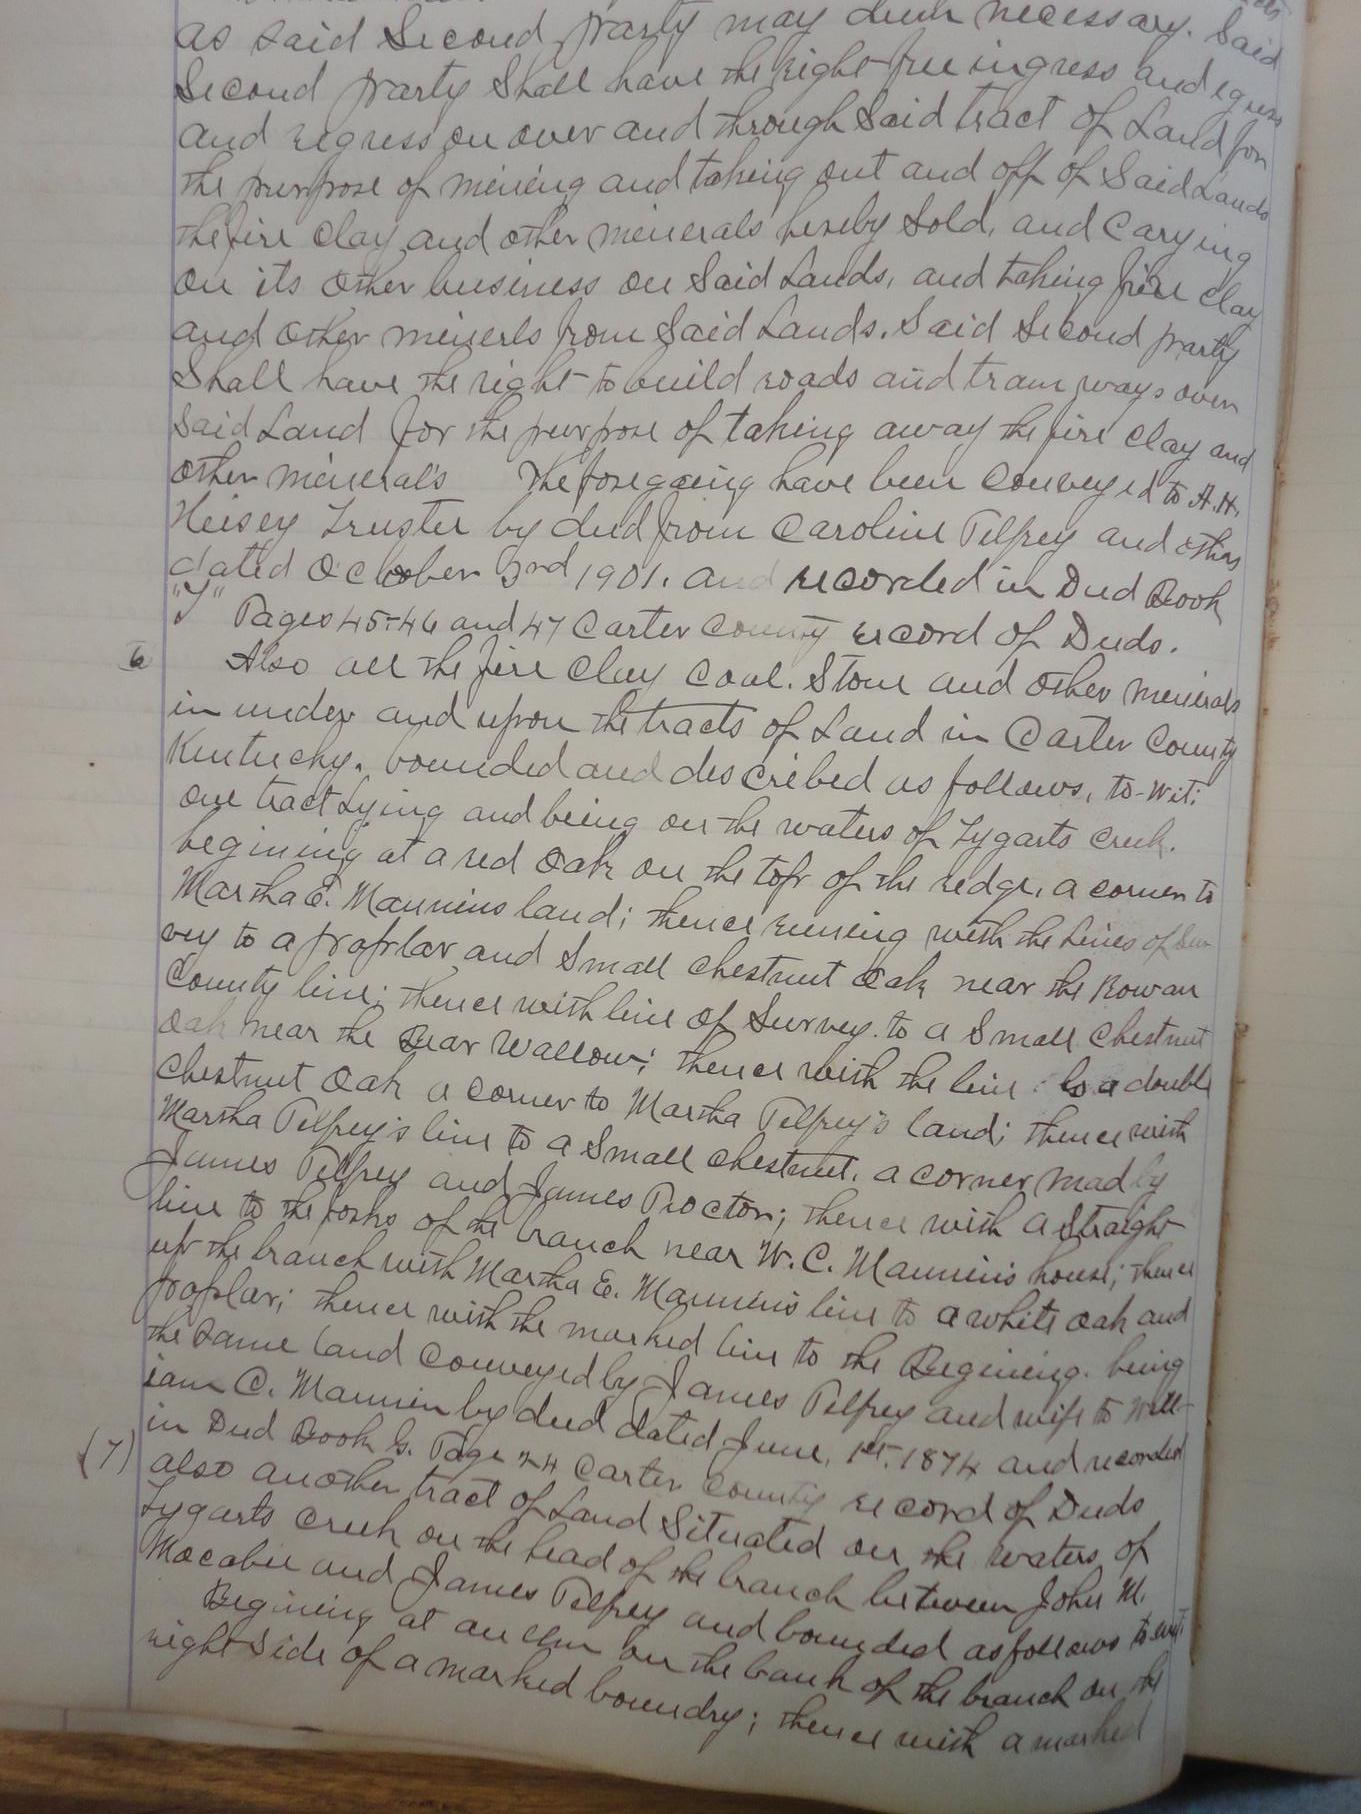 as said Second party may deem necessary. Said
Second party Shall have the right free ingress and egress
and regress on over and through Said tract of Land for
the purpose of mineing and taking out and off of Said Lands
the fire Clay and other minerals hereby Sold, and Carying
on its other business on Said Lands, and taking fire clay
and other minerls from Said Lands. Said Second party
Shall have the right to build roads and tram ways over
Said Land for the purpose of taking away the fire clay and
other minerals The foregoeing have been Conveyed to A.H.
Heisey Trustee by deed from Caroline Pelfrey and others
dated October 3rd 1901. and recorded in Deed Book
"T" Pages 45-46 and 47 Carter County record of Deeds.
6 Also all the fire Clay Coal. Stone and other minerals
in under and upon the tracts of Land in Carter County
Kentucky. bounded and described as follows, to-wit:
one tract Lying and being on the waters of Tygarts Creek.
begining at a red Oak on the top of the redge, a corner to
Martha E. Mannins land; thence runing with the Lines of Sur
vey to a poplar and Small chestnut Oak near the Rowan
County line; thence with line of Survey. to a Small Chestnut
Oak near the Bear Wallow; thence with the line to a double
Chestnut Oak a corner to Martha Pelfrey's land; thence with
Martha Pelfrey's line to a Small chestnut, a corner mad by
James Pelfrey and James Proctor; thence with a Straight
line to the forks of the branch near W.C. Mannin's house; thence
up the branch with Martha E. Mannin's line to a white oak and
poplar; thence with the marked line to the Begining. being
the Same land Conveyed by James Pelfrey and wife to Will-
iam C. Mannin by deed dated June, 1st. 1874 and recorded
in Deed Book G. Page 24 Carter County record of Deeds
(7) also another tract of Land Situated on the waters of
Tygarts Creek on the head of the branch between John M.
Macabee and James Pelfrey and bounded as follows to-wit
Begining at an elm on the bank of the branch on the
right Side of a marked boundry; thence with a marked